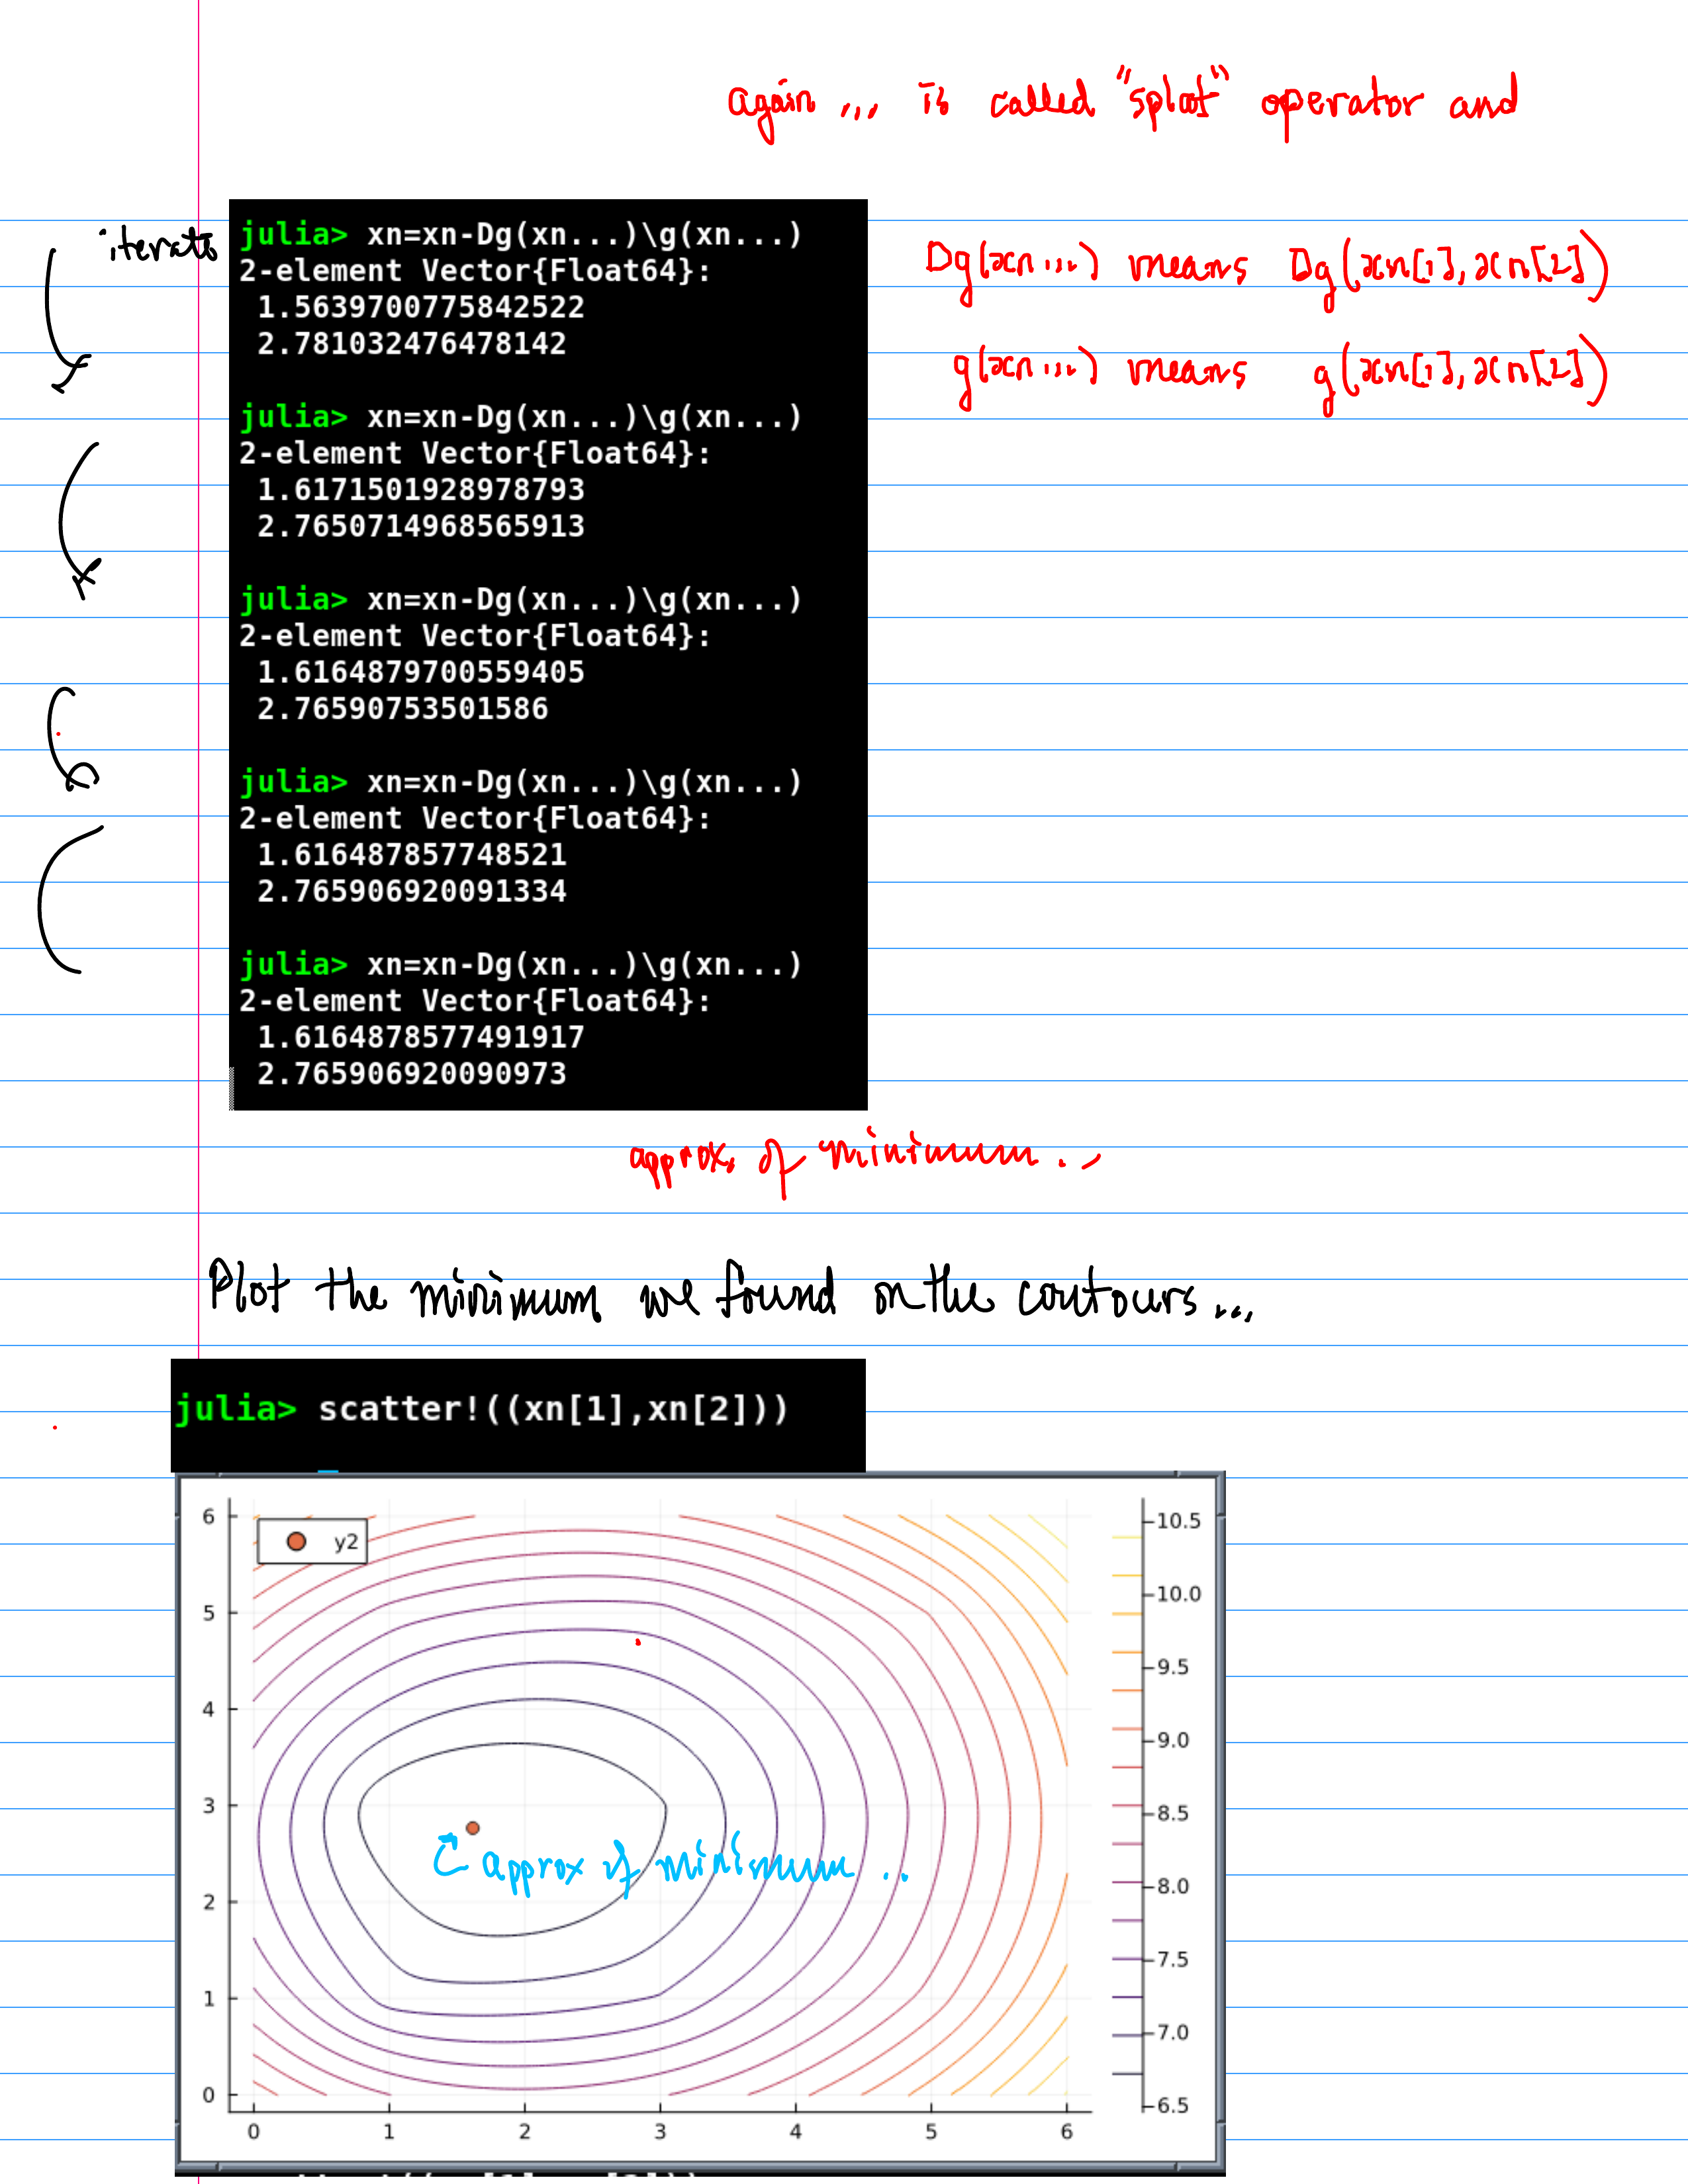 again ... is called "splat" operator and
iterate
julia> xn=xn-Dg(xn...)\g(xn...)
2-element Vector{Float64}:
1.5639700775842522
2.781032476478142
Dg(xn...) means Dg(xn[1],xn[2])
g(xn...) means g(xn[1],xn[2])
julia> xn=xn-Dg(xn...)\g(xn...)
2-element Vector{Float64}:
1.6171501928978793
2.7650714968565913
julia> xn=xn-Dg(xn...)\g(xn...)
2-element Vector{Float64}:
1.6164879700559405
2.76590753501586
julia> xn=xn-Dg(xn...)\g(xn...)
2-element Vector{Float64}:
1.616487857748521
2.765906920091334
julia> xn=xn-Dg(xn...)\g(xn...)
2-element Vector{Float64}:
1.6164878577491917
2.765906920090973
approx. of minimum..
Plot the minimum we found on the contours...
julia> scatter!((xn[1],xn[2]))
y2
6
5
4
3
2
1
0
0 1 2 3 4 5 6
10.5
10.0
9.5
9.0
8.5
8.0
7.5
7.0
6.5
approx of minimum ..